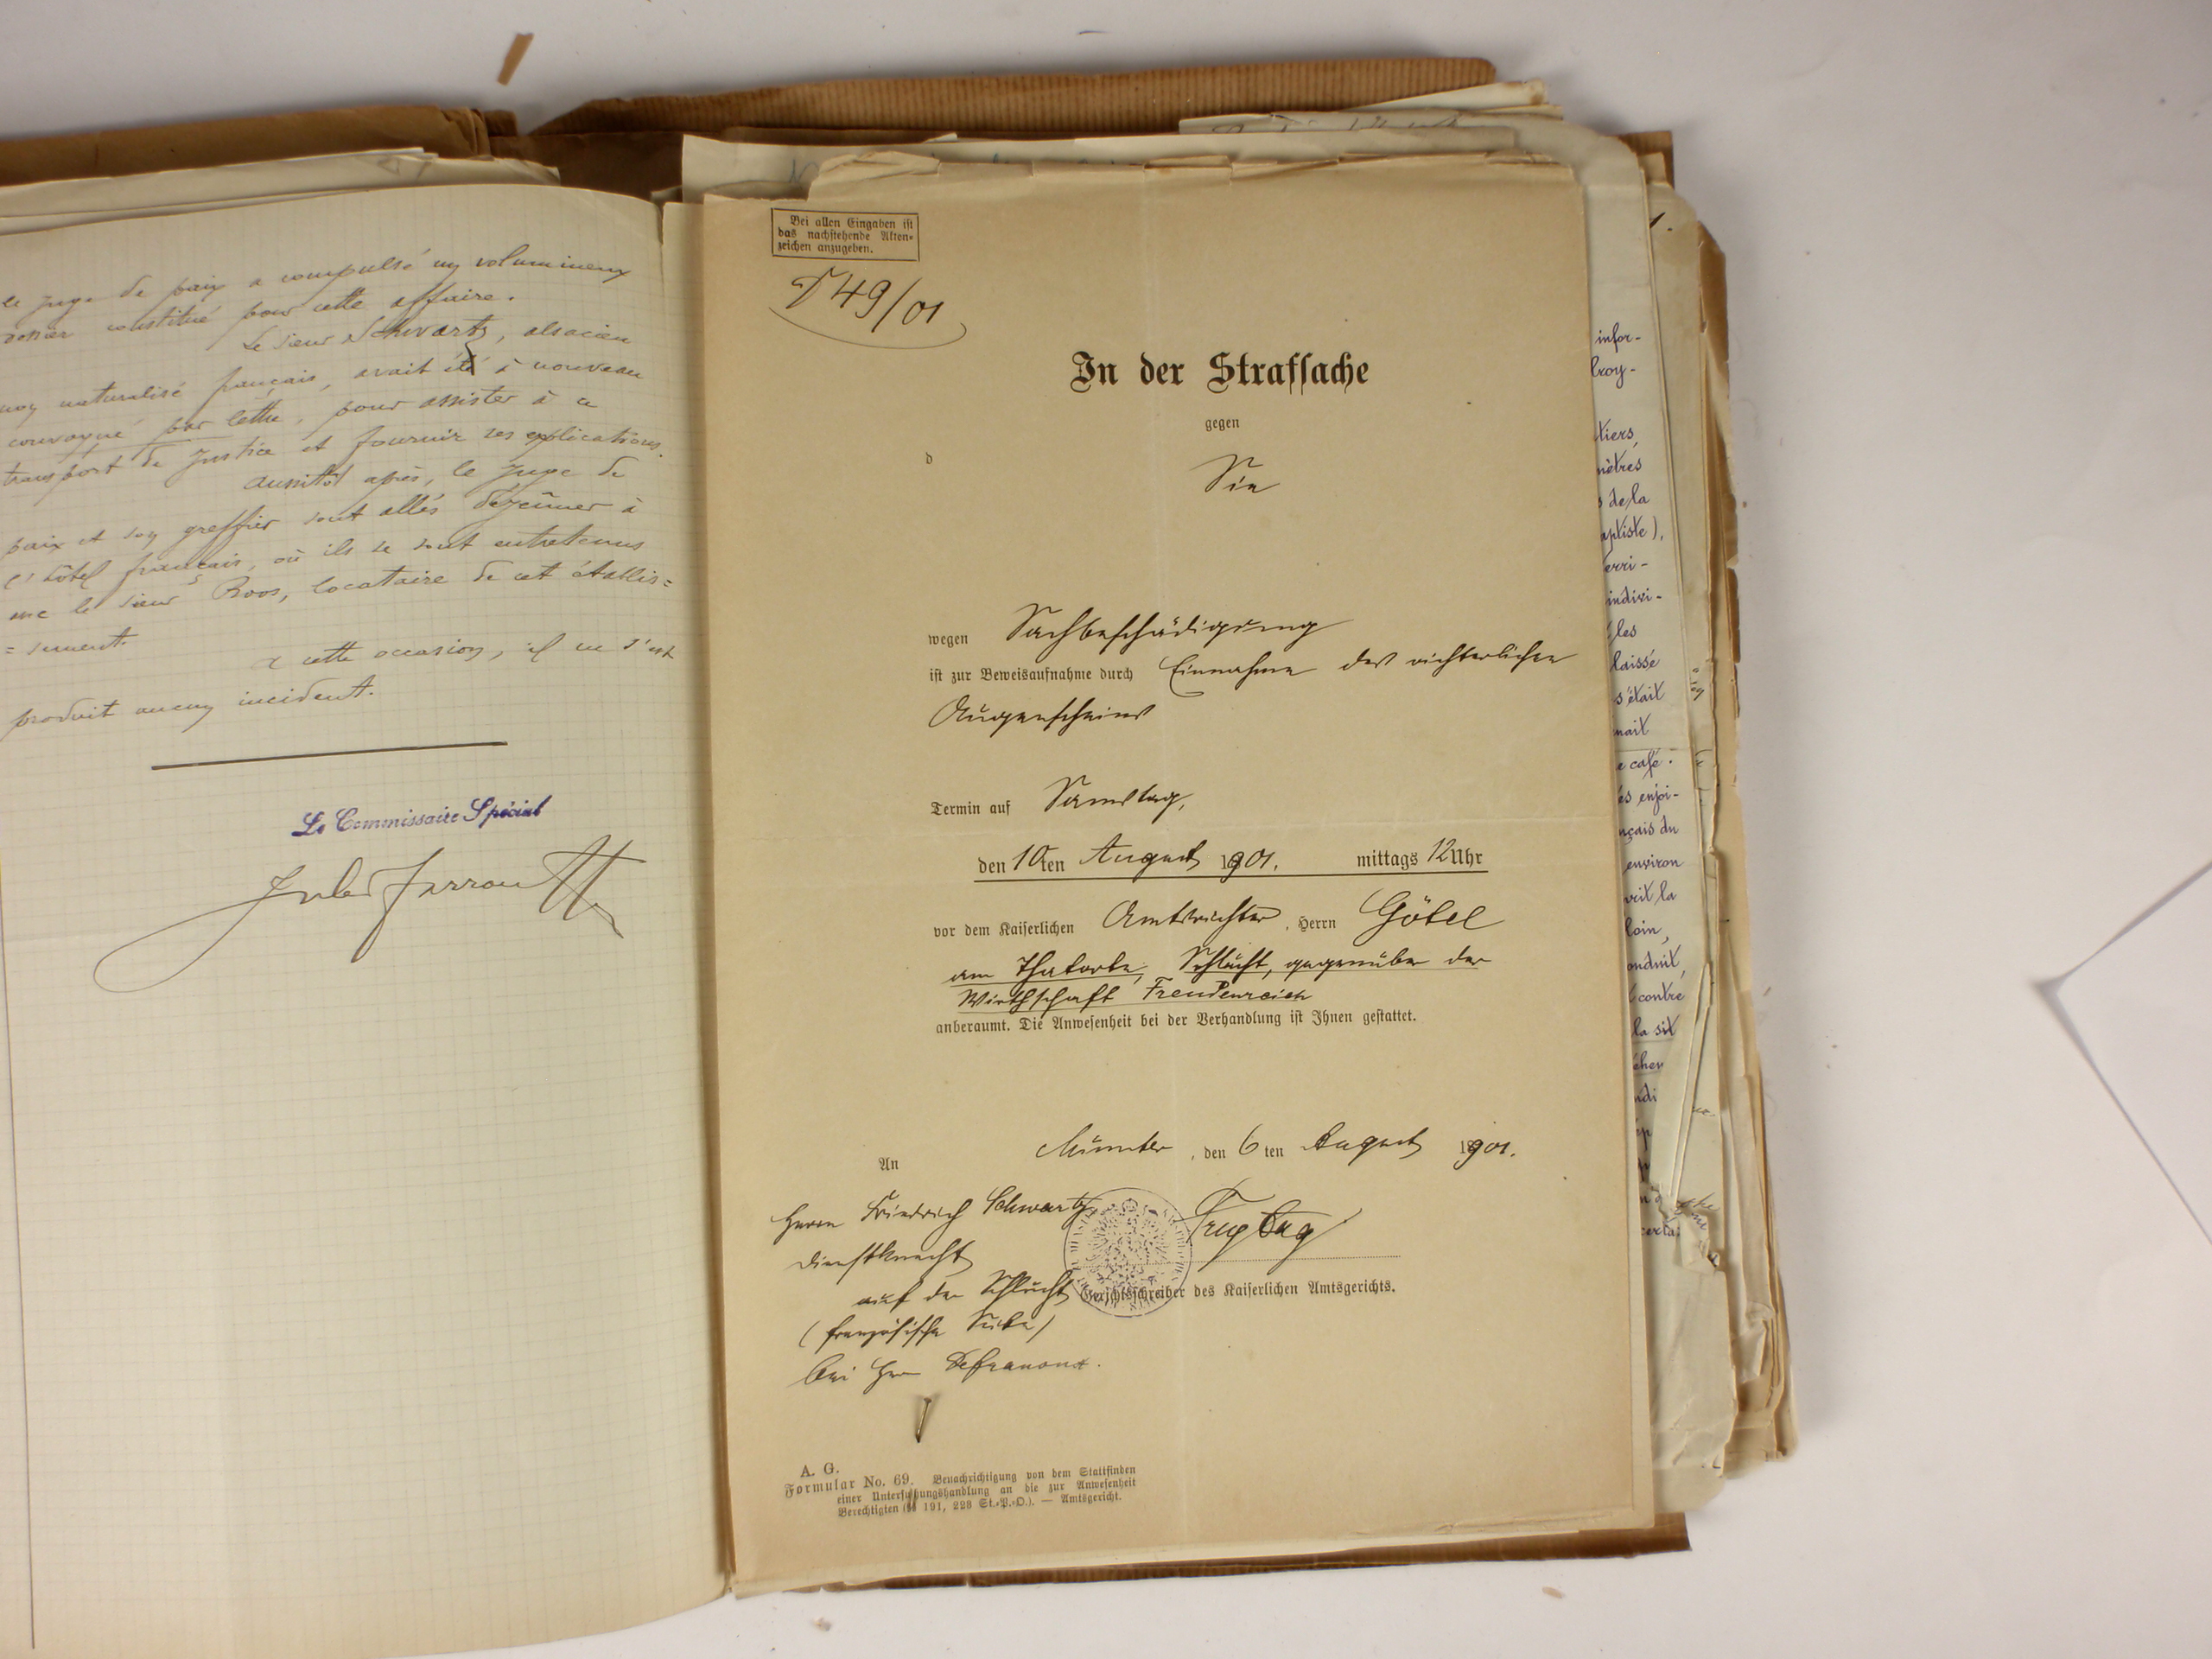 le juge de paix a compulsé un volumineux
dossier constitué pour cette affaire.
Le sieur Schvartz, alsacien
non naturalisé français, avait été à nouveau
convoqué par lettre, pour assister à ce
transport de justice et fournir ses explications.
Aussitôt après, le juge de
paix et son greffier sont allés déjeûner à
l'hôtel français, où ils se sont entretenus
avec le sieur Roos, locataire de cet établis=
=sement.
A cette occasion, il ne s'est
produit aucun incident.
Le Commissaire Spécial
Bei allen Eingaben ist
das nachstehende Akten-
zeichen anzugeben.
49/01
In der Strafsache
gegen
d
Sie
wegen Sachbeschädigung
ist zur Beweisaufnahme durch Einnahme des richterlichen
Augenscheins
Termin auf Samstag,
den 10ten August 1901. mittags 12 Uhr
vor dem Kaiserlichen Amtsrichter, Herrn Göbel
am Thatorte, Schlucht, gegenüber der
Wirthschaft Freudenreich
anberaumt. Die Anwesenheit bei der Verhandlung ist Ihnen gestattet.
Münster, den 6ten August 1901.
An
Herrn Friedrich Schwartz
Dienstknecht
auf der Schlucht
(französische Seite)
bei Hrn Defranoux.
Freytag
Gerichtsschreiber des Kaiserlichen Amtsgerichts.
A. G.
Formular No. 69. Benachrichtigung von dem Stattfinden
einer Untersuchungshandlung an die zur Anwesenheit
Berechtigten (§§ 191, 223 St.-P.-O.). — Amtsgericht.
1.
infor-
troy-
tiers,
mètres
de la
aptiste),
erri-
indivi-
les
laissé
s'était
nait
café.
es enjoi-
nçais du
environ
vrit la
loin,
onduit,
contre
la sit